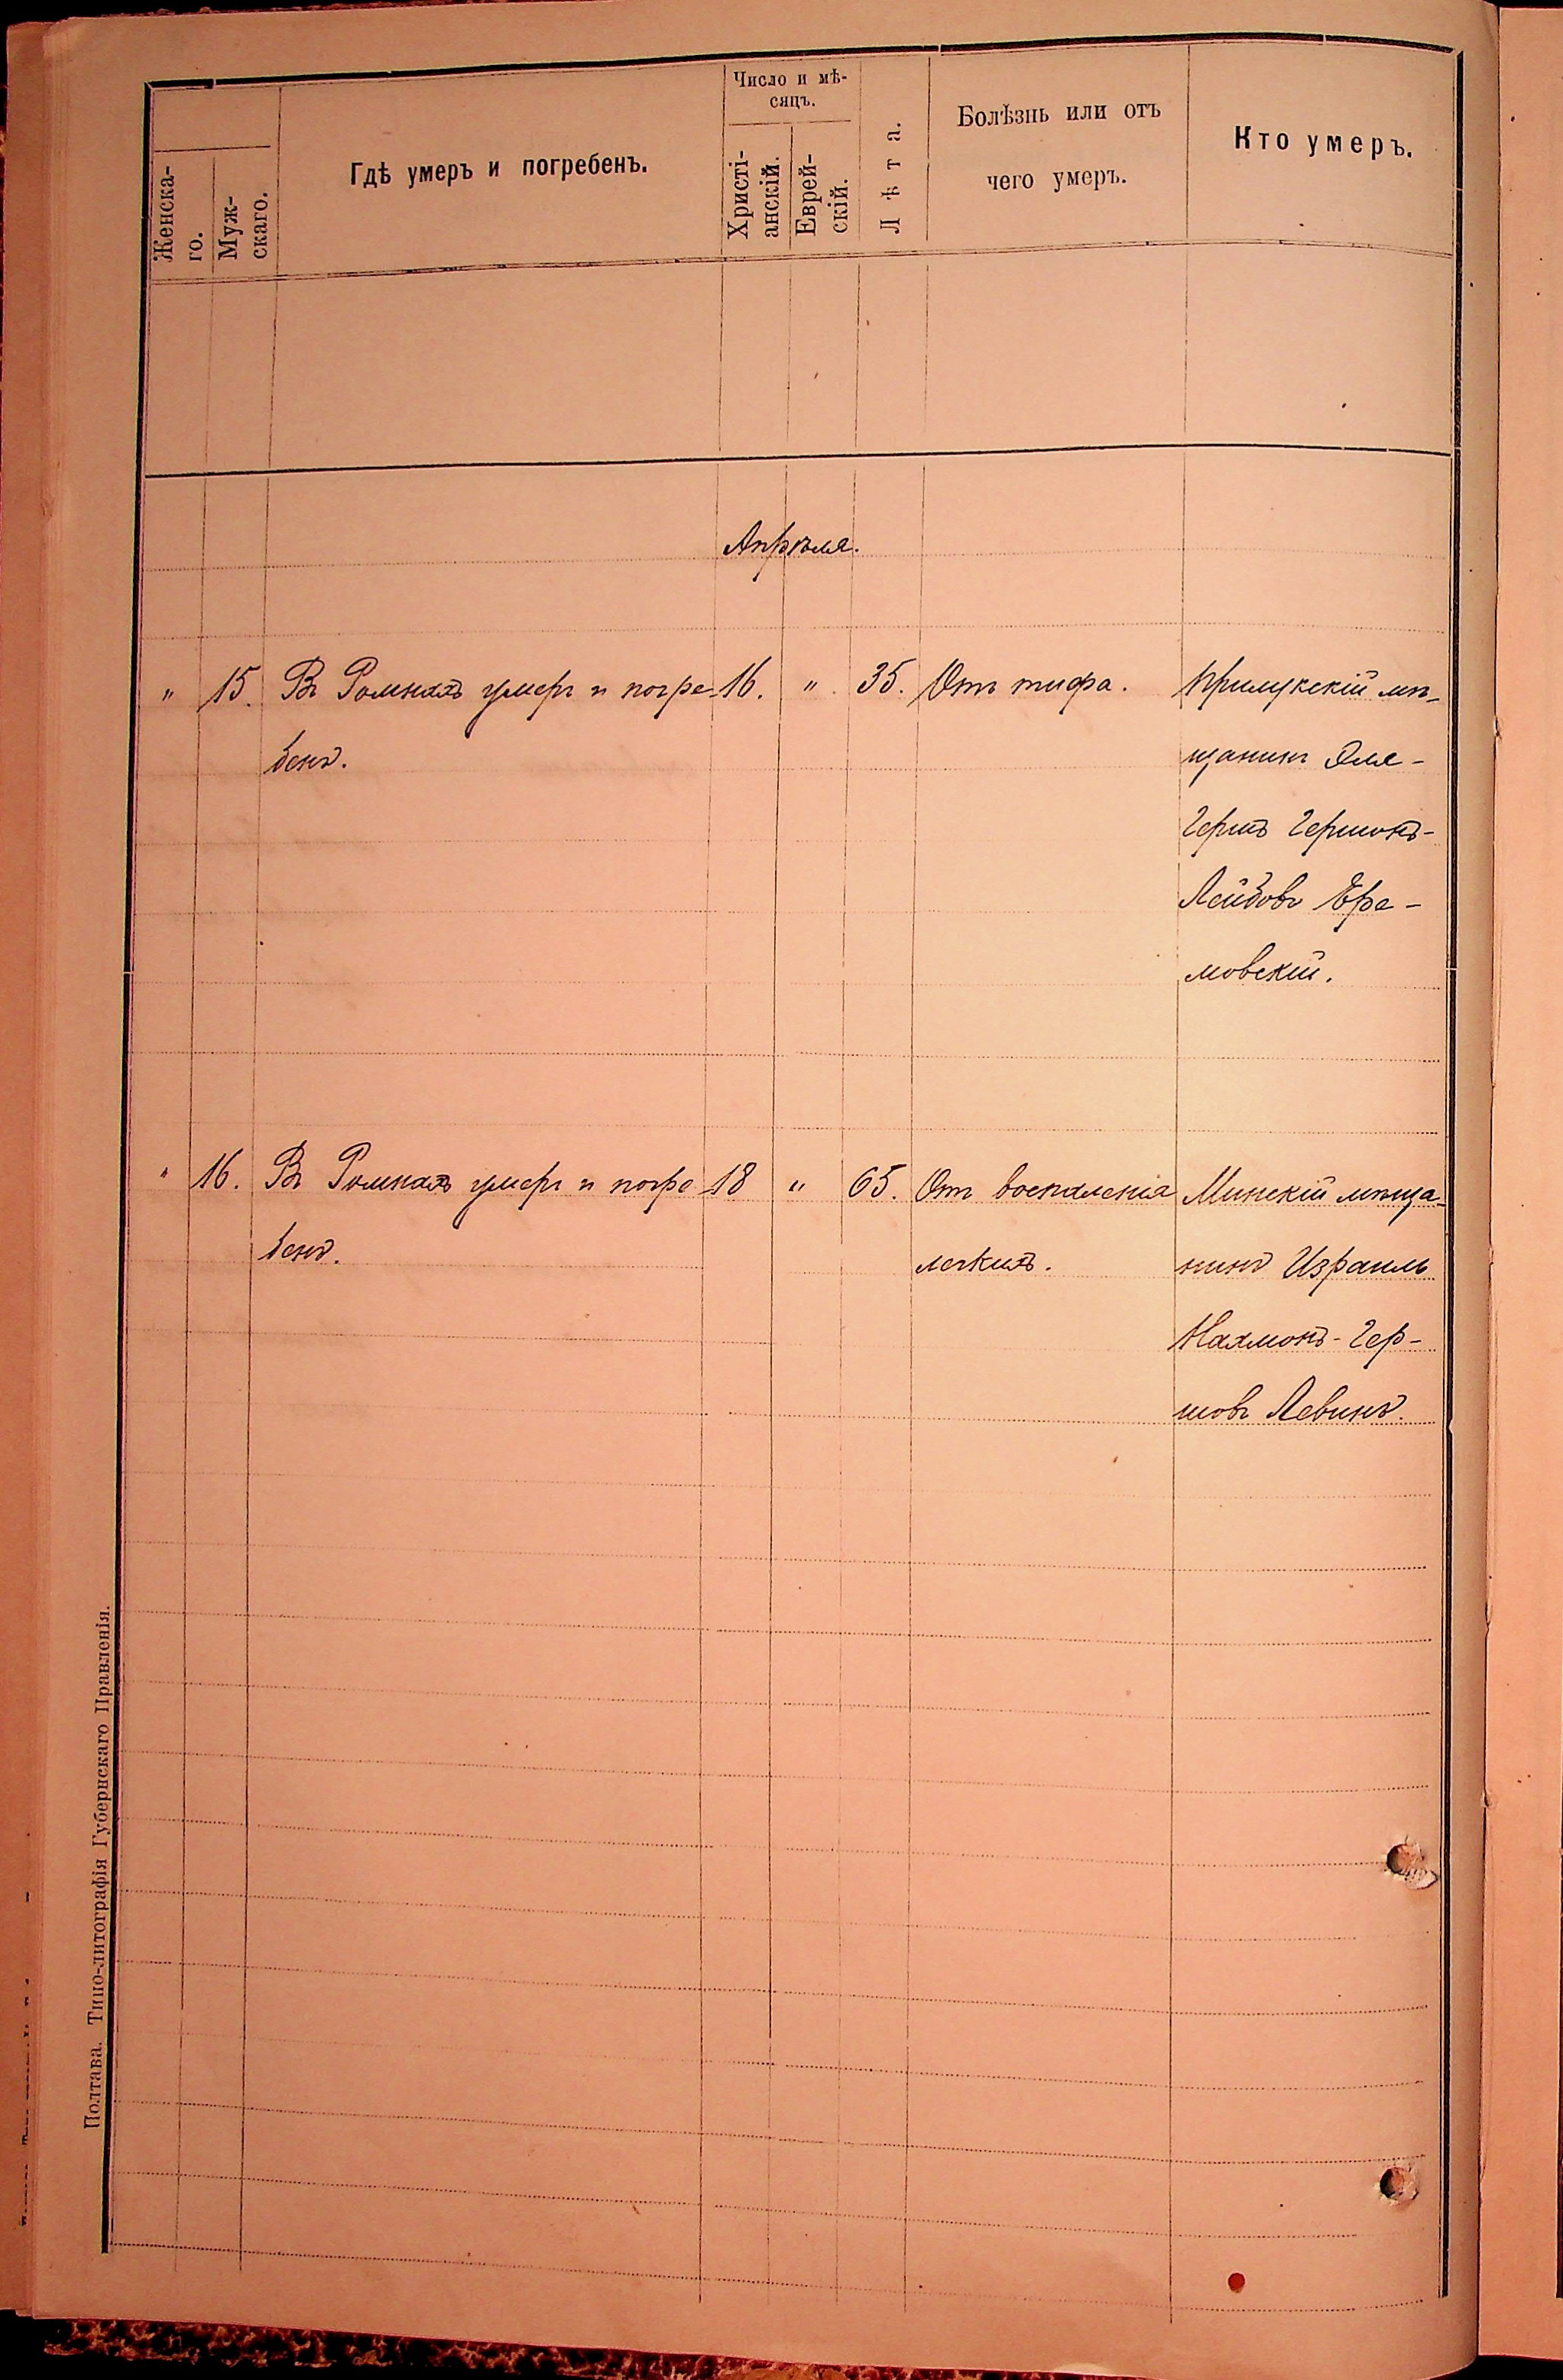 Женска-
го.
Муж-
скаго.
Гдѣ умеръ и погребенъ.
Число и мѣ-
сяцъ.
Христі-
анскій.
Еврей-
скій.
Лѣта.
Болѣзнь или отъ
чего умеръ.
Кто умеръ.
Апрѣля.
" 15. Въ Ромнахъ умеръ и погре- 16. " 35. Отъ тифа. Прилукскій мѣ-
бенъ. щанинъ Эля-
Гершъ Гершонъ-
Лейбовъ Ере-
мовскій.
" 16. Въ Ромнахъ умеръ и погре 18 " 65. Отъ воспаленія Минскій мѣща-
бенъ. легкихъ. нинъ Израиль
Нахмонъ-Гер-
шовъ Левинъ.
Полтава. Типо-литографія Губернскаго Правленія.